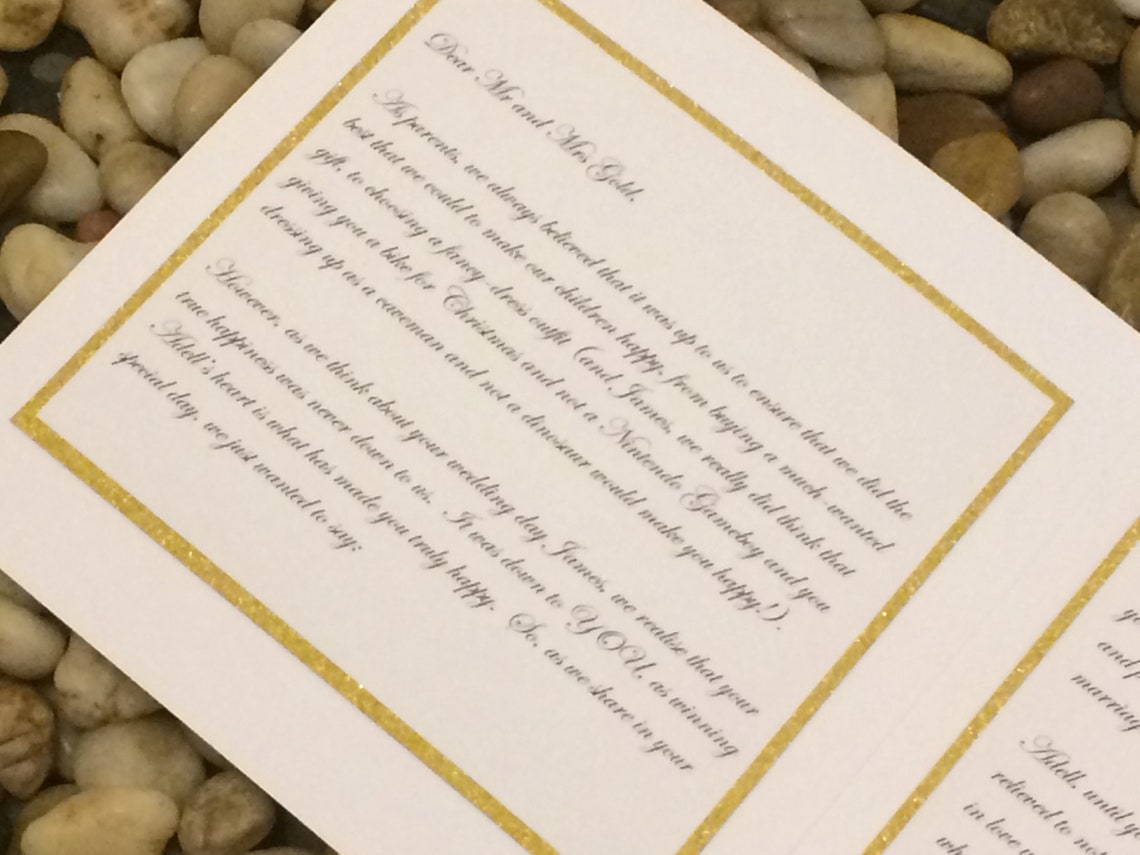 Dear Mr and Mrs Gold,
As parents, we always believed that it was up to us to ensure that we did the
best that we could to make our children happy, from buying a much-wanted
gift, to choosing a fancy-dress outfit (and, James, we really did think that
giving you a bike for Christmas and not a Nintendo Gameboy and you
dressing up as a caveman and not a dinosaur would make you happy!).
However, as we think about your wedding day James, we realise that your
true happiness was never down to us. It was down to YOU, as winning
Adell's heart is what has made you truly happy. So, as we share in your
special day, we just wanted to say:
and
marriag
Adell, until
relieved to
in love